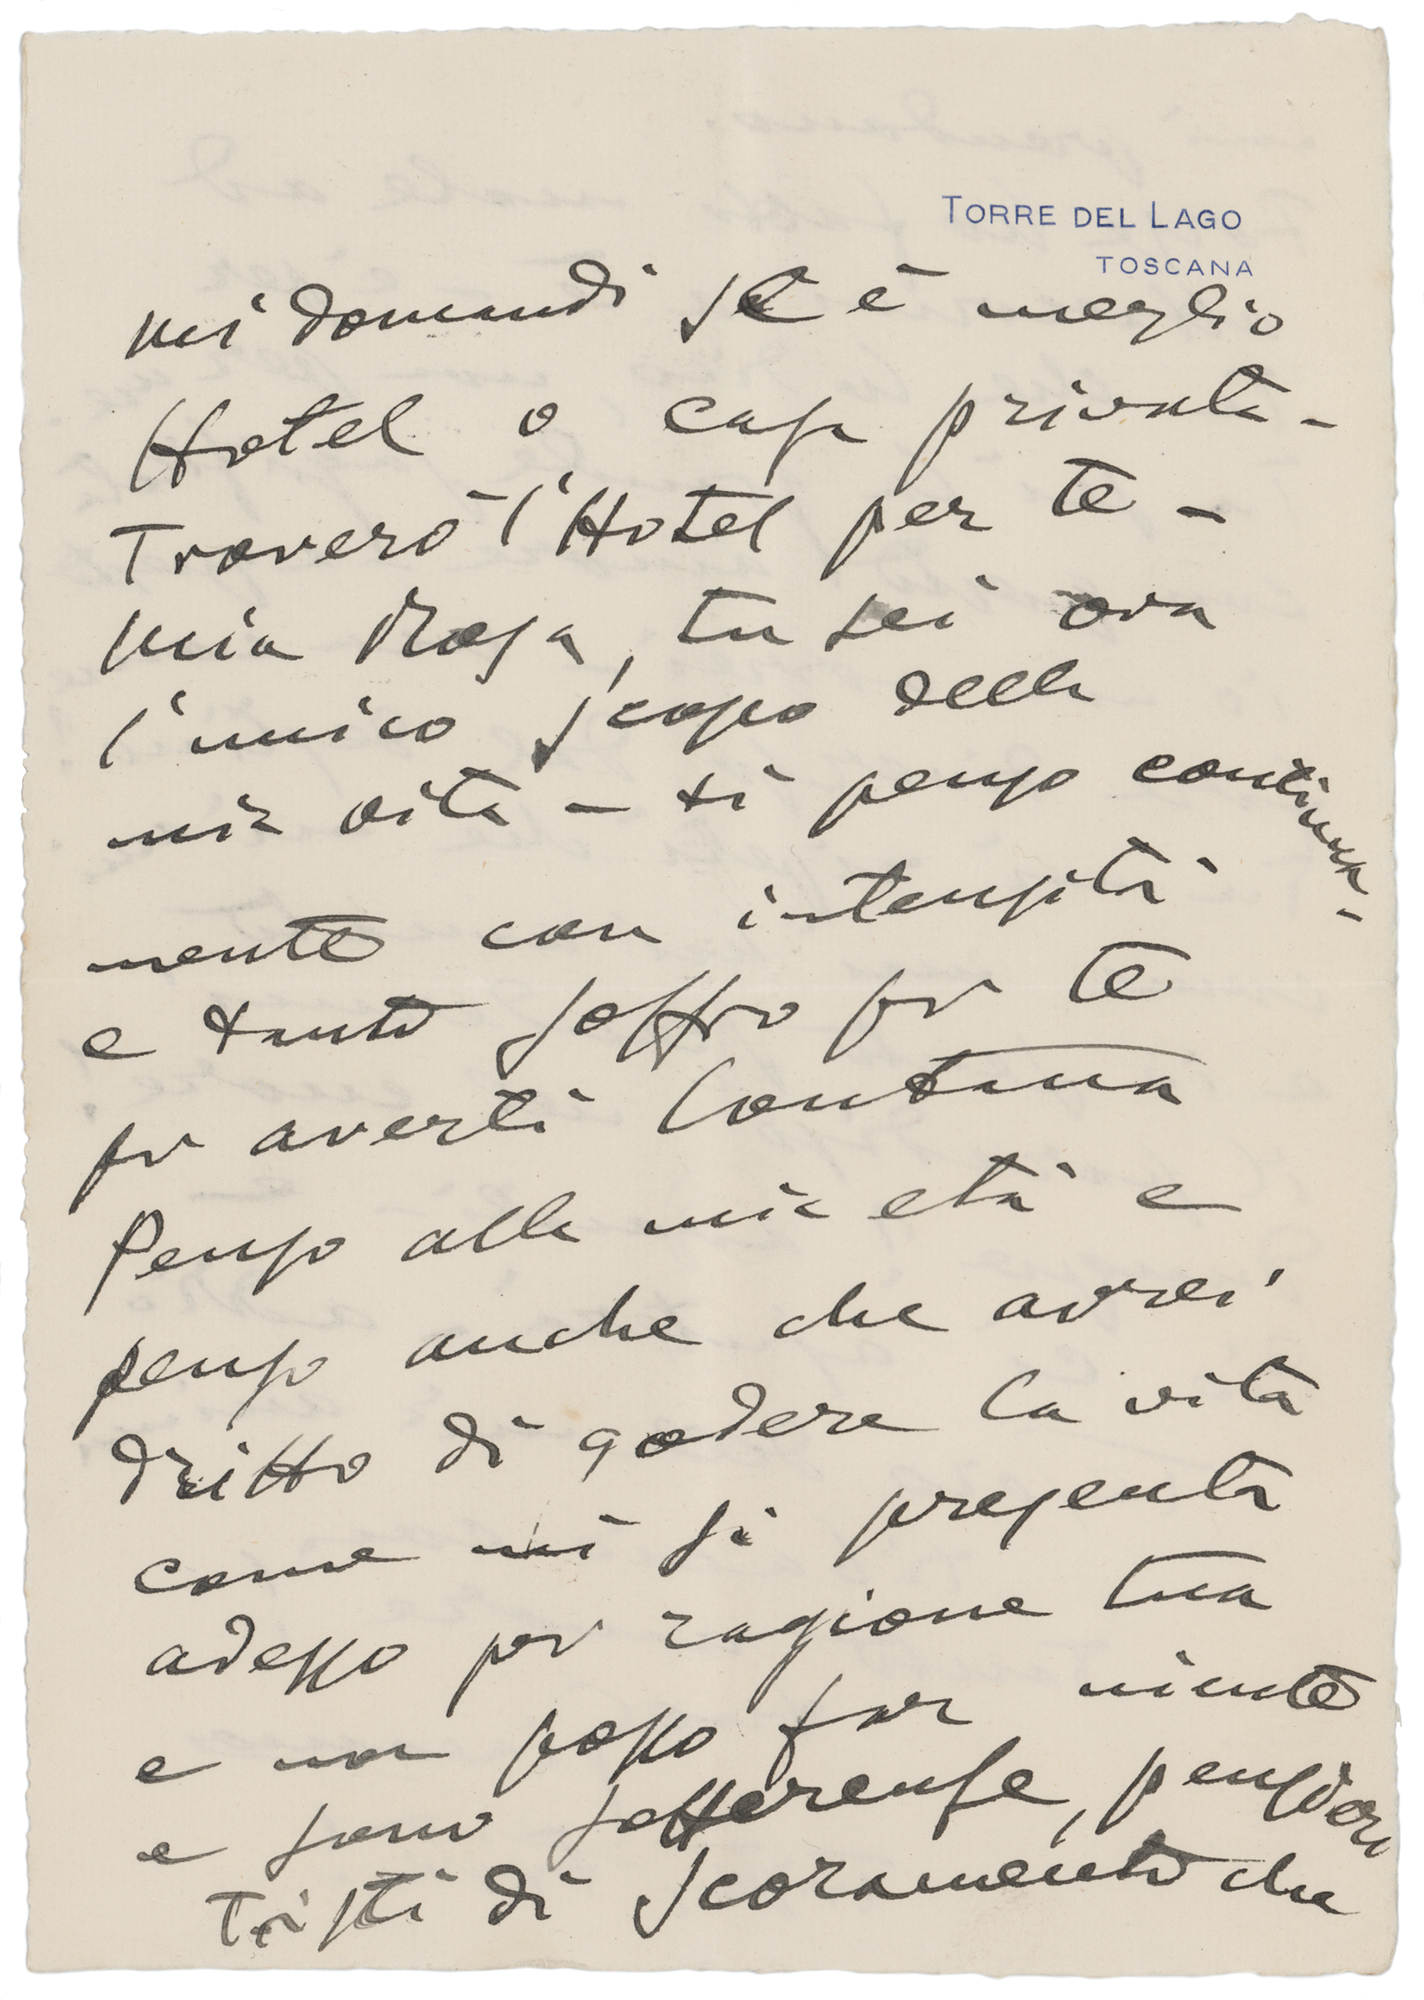 TORRE DEL LAGO
TOSCANA
mi domandi se è meglio
Hotel o casa privata -
Troverò l'Hotel per te -
mia Rosa, tu sei ora
l'unico scopo della
mia vita - ti penso continua-
mente con intensità
e tanto soffro per te
per averti lontana
Penso alla mia età e
penso anche che avrei
dritto di godere la vita
come mi si presenta
adesso per ragione tua
e non posso far niente
e sono sofferenze, pensieri
tristi di scoramento che